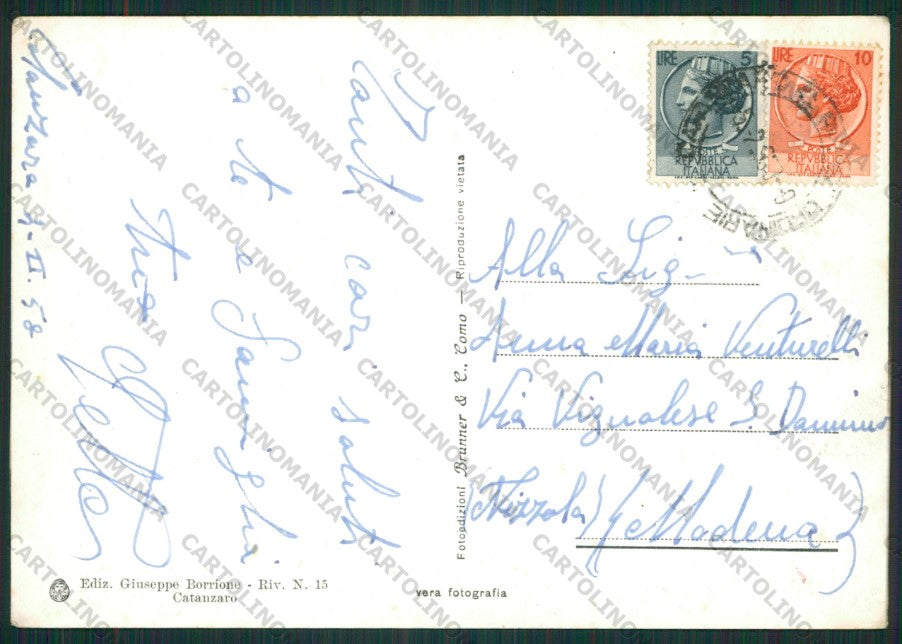 Catanzaro 9-II-58
Tanti cari saluti
a te e famiglia
tua
LIRE 5
POSTE
REPVBBLICA
ITALIANA
LIRE 10
POSTE
REPVBBLICA
ITALIANA
Alla Sig-na
Anna Maria Venturelli
Via Vignolese S. Damiano
(Nizzola) (Modena)
Fotoedizioni Brunner & C., Como — Riproduzione vietata
Ediz. Giuseppe Borrione - Riv. N. 15
Catanzaro
vera fotografia
CARTOLINOMANIA